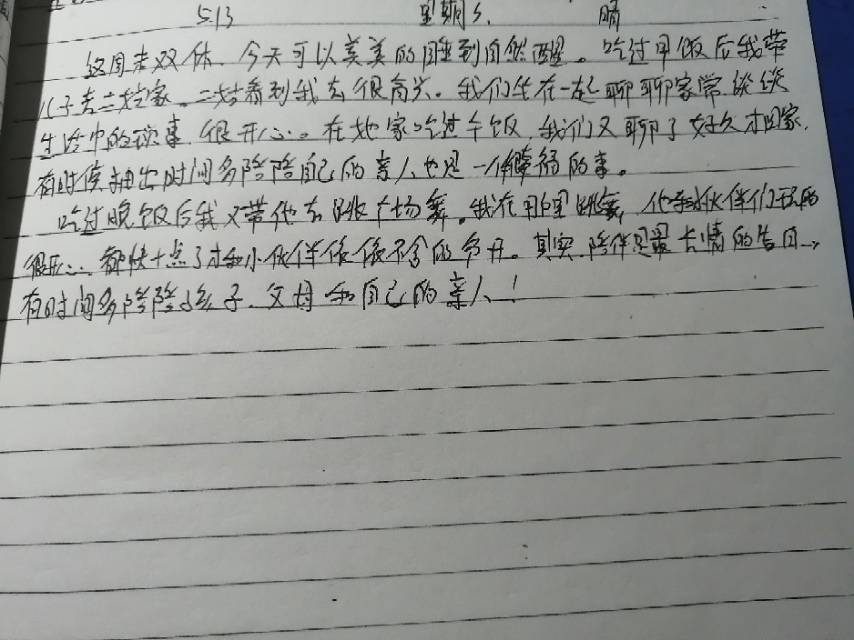 5.13 星期六 晴
这周末双休，今天可以美美的睡到自然醒。吃过早饭后我带
儿子去二姑家，二姑看到我去很高兴。我们坐在一起聊聊家常，谈谈
生活中的琐事，很开心。在她家吃过午饭，我们又聊了好久才回家，
有时候抽出时间多陪陪自己的亲人也是一件幸福的事。
吃过晚饭后我又带他去跳广场舞，我在那里跳舞，他和小伙伴们玩的
很开心，都快十点了才和小伙伴依依不舍的分开。其实，陪伴是最长情的告白，
有时间多陪陪孩子、父母和自己的亲人！